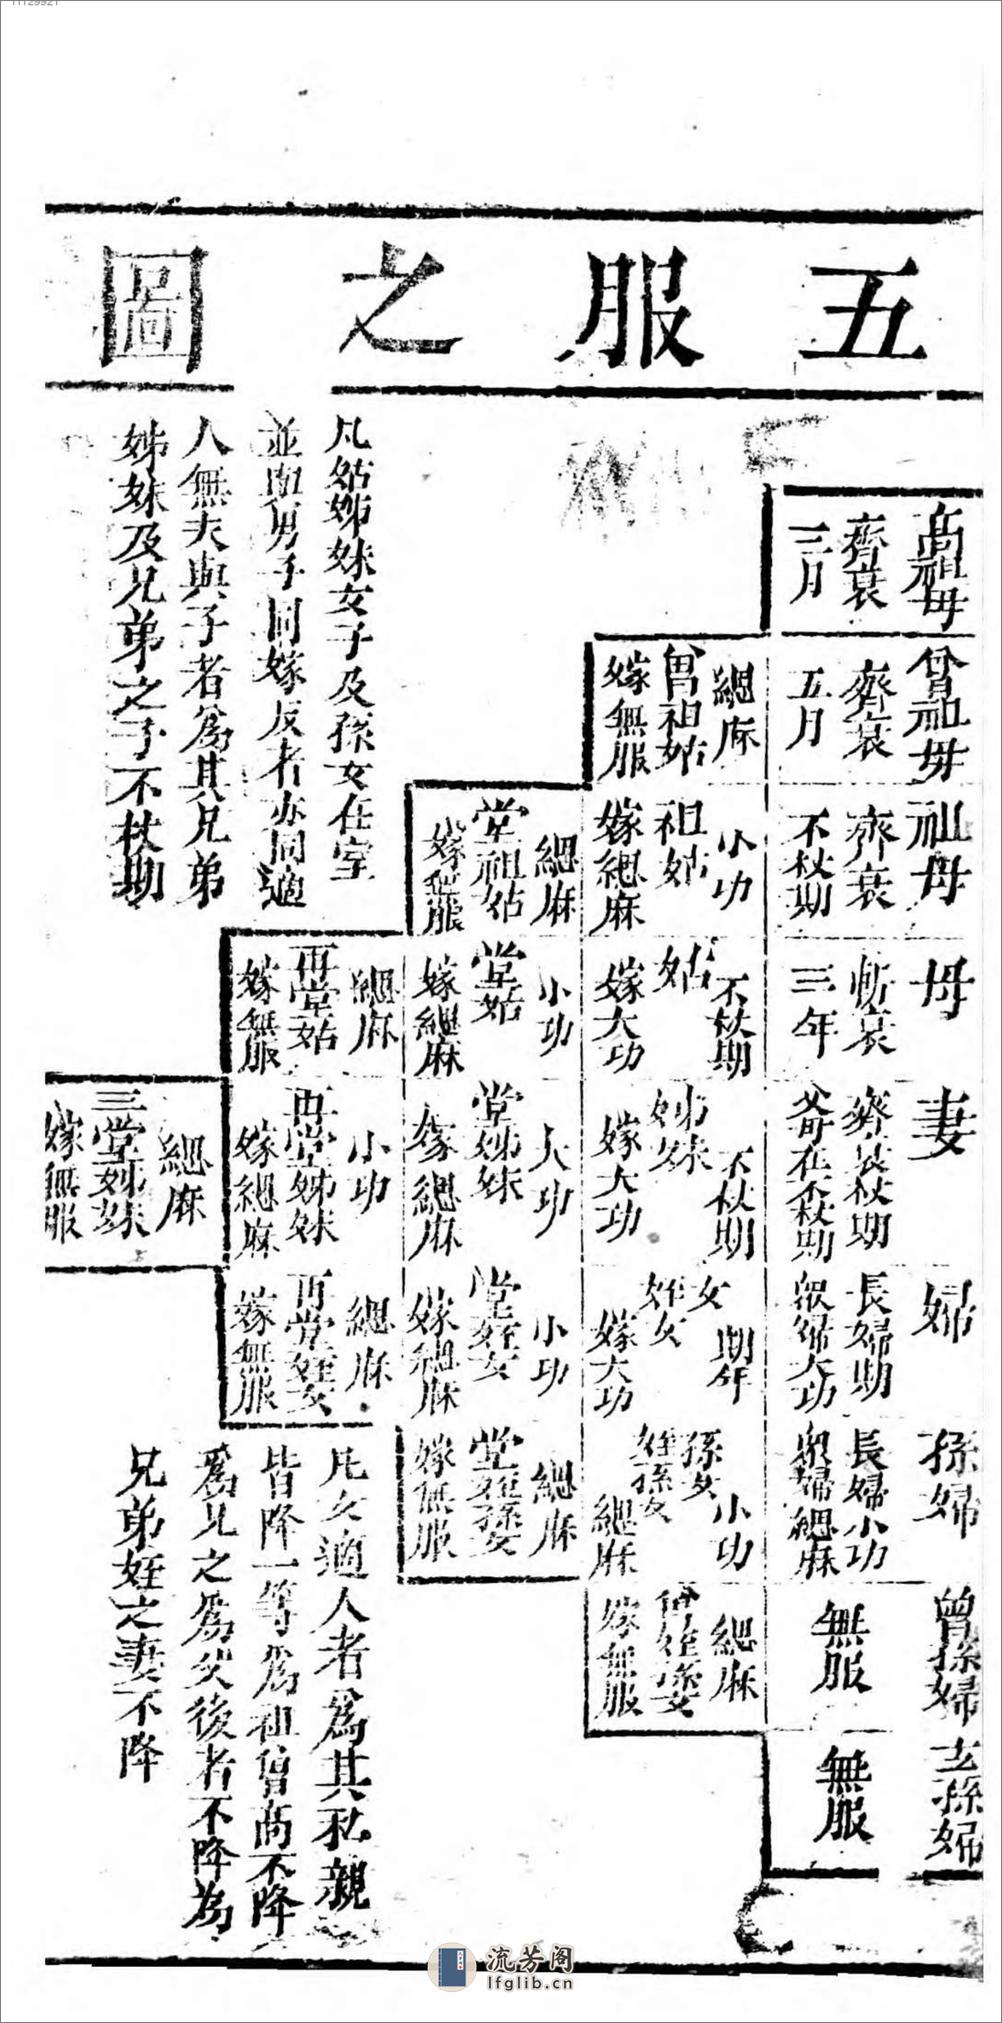 五服之圖
高祖母
齊衰
三月
曾祖母
齊衰
五月
祖母
齊衰
不杖期
母
斬衰
三年
妻
齊衰杖期
父母在不杖期
婦
長婦期
眾婦大功
孫婦
長婦小功
眾婦緦麻
曾孫婦
無服
玄孫婦
無服
緦麻
曾祖姑
嫁無服
小功
祖姑
嫁緦麻
不杖期
姑
嫁大功
不杖期
姊妹
嫁大功
女
期年
姪女
嫁大功
孫女
小功
姪孫女
緦麻
緦麻
曾姪孫女
嫁無服
緦麻
堂祖姑
嫁無服
小功
堂姑
嫁緦麻
大功
堂姊妹
嫁緦麻
小功
堂姪女
嫁緦麻
緦麻
堂姪孫女
嫁無服
緦麻
再堂姑
嫁無服
小功
再堂姊妹
嫁緦麻
緦麻
再堂姪女
嫁無服
緦麻
三堂姊妹
嫁無服
凡姑姊妹女子及孫女在室
並與男子同嫁反者亦同適
人無夫與子者為其兄弟
姊妹及兄弟之子不杖期
凡女適人者為其私親
皆降一等為祖曾高不降
為兄之為父後者不降為
兄弟姪之妻不降
流芳阁
lfglib.cn